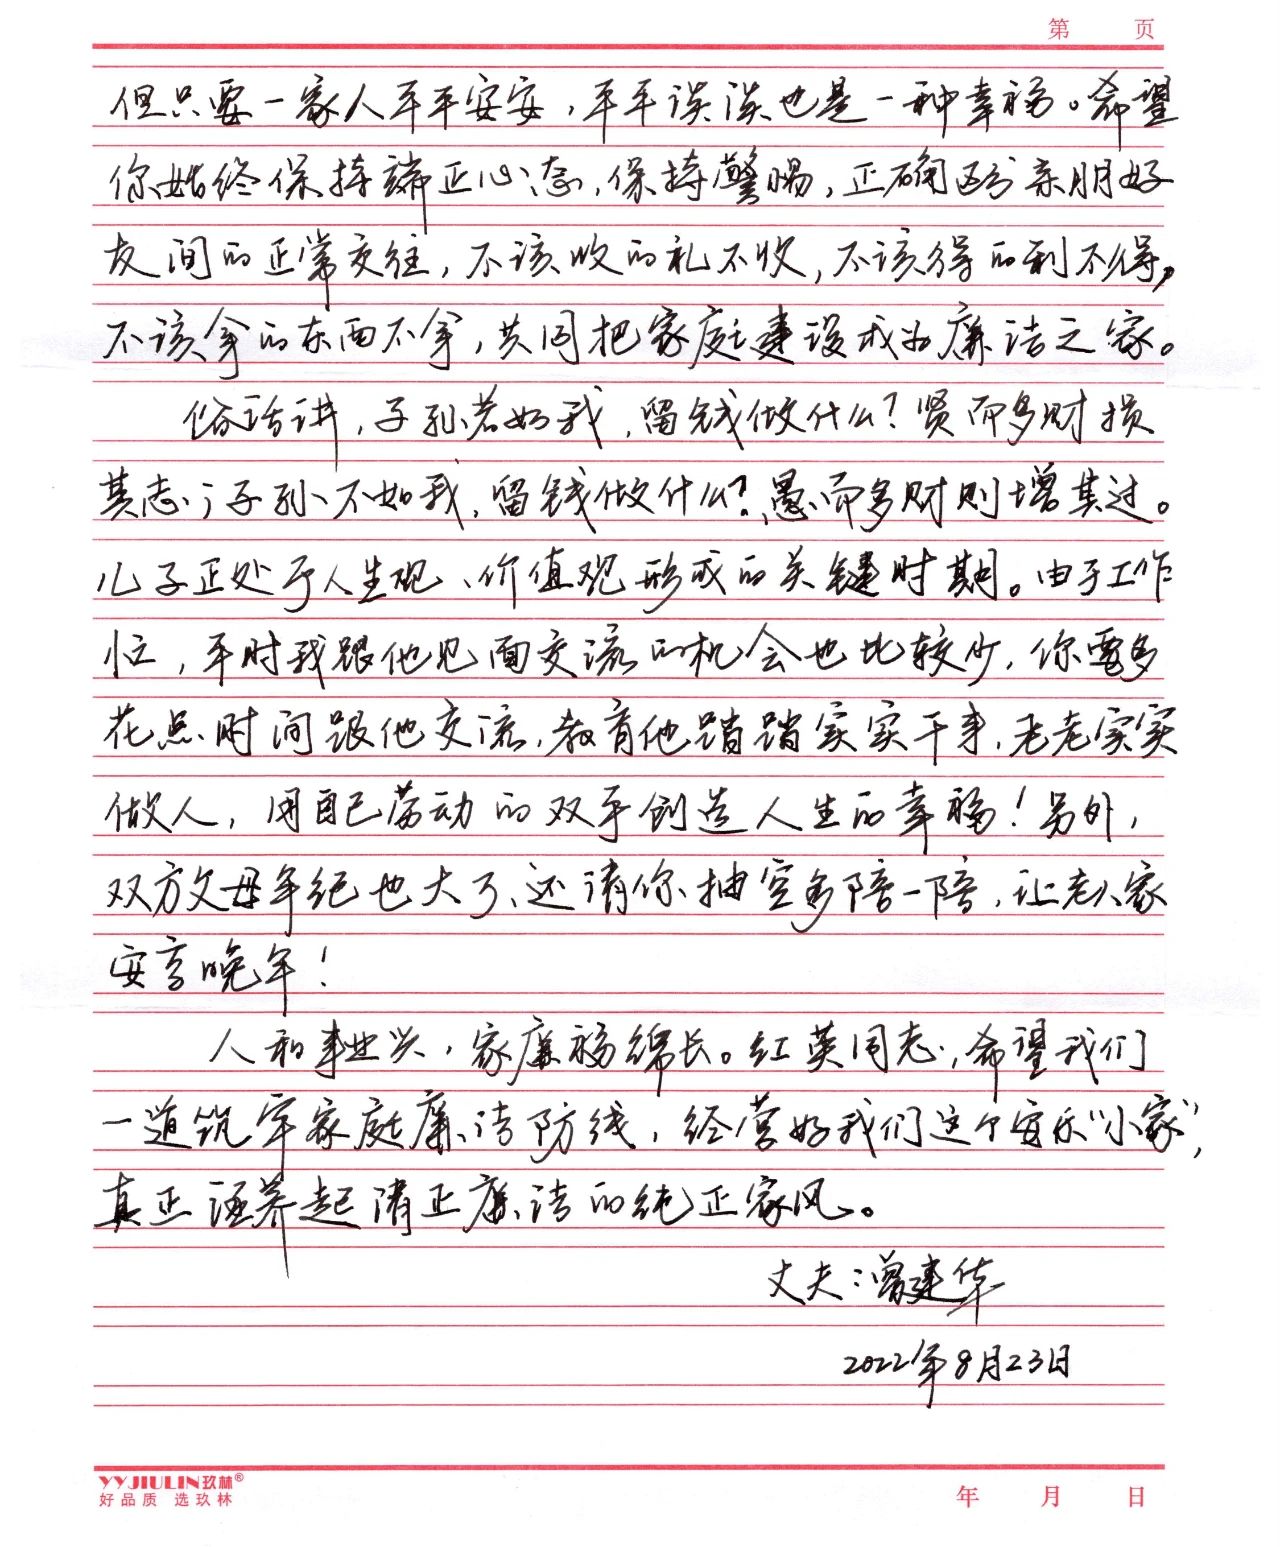 第 页
但只要一家人平平安安，平平谈谈也是一种幸福。希望
你始终保持端正心态，保持警惕，正确区分亲朋好
友间的正常交往，不该收的礼不收，不该得的利不得，
不该拿的东西不拿，共同把家庭建设成为廉洁之家。
俗话讲，子孙若如我，留钱做什么？贤而多财损
其志；子孙不如我，留钱做什么？愚而多财则增其过。
儿子正处于人生观、价值观形成的关键时期。由于工作
忙，平时我跟他见面交流的机会也比较少，你要多
花点时间跟他交流，教育他踏踏实实干事，老老实实
做人，用自己劳动的双手创造人生的幸福！另外，
双方父母年纪也大了，还请你抽空多陪一陪，让老人家
安享晚年！
人和事业兴，家廉福绵长。红英同志，希望我们
一道筑牢家庭廉洁防线，经营好我们这个安乐“小家”，
真正涵养起清正廉洁的纯正家风。
丈夫：曾建华
2022年8月23日
YYJIULIN玖林®
好品质 选玖林
年 月 日